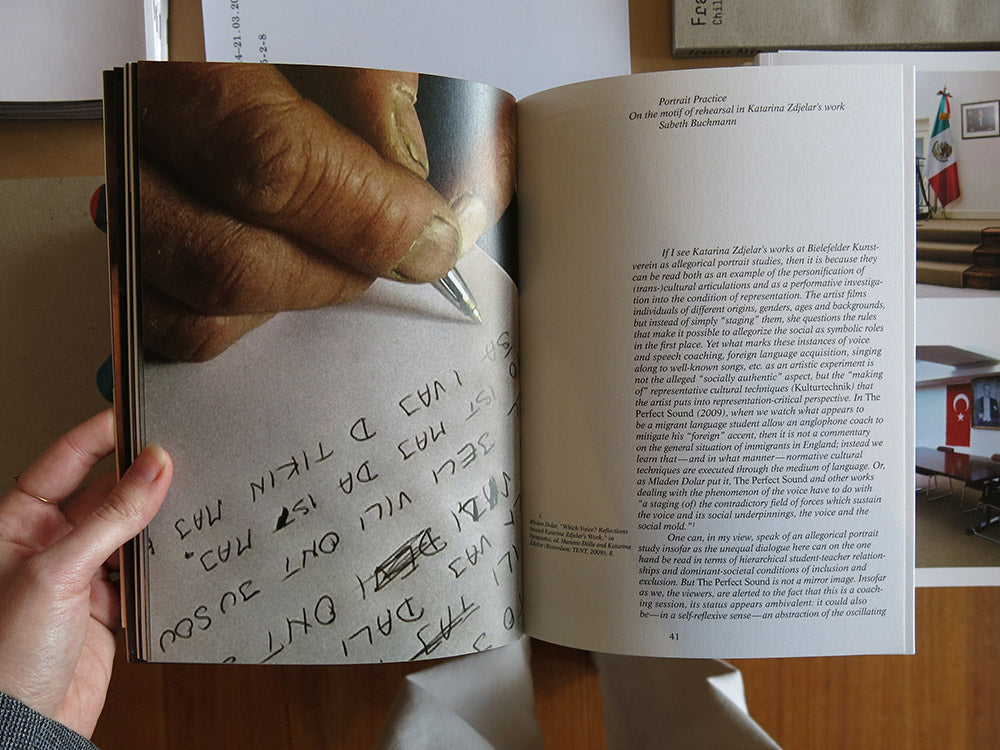 4–21.03.20
5-2-8
Fra
Chil
Francis Al
I VAJ
D
TIKIN MAJ
IST MAJ DA IST MAJ.
BELI VILI ONT JUSOU
ONT
VAJ DALI
Portrait Practice
On the motif of rehearsal in Katarina Zdjelar's work
Sabeth Buchmann
If I see Katarina Zdjelar's works at Bielefelder Kunst-
verein as allegorical portrait studies, then it is because they
can be read both as an example of the personification of
(trans-)cultural articulations and as a performative investiga-
tion into the condition of representation. The artist films
individuals of different origins, genders, ages and backgrounds,
but instead of simply "staging" them, she questions the rules
that make it possible to allegorize the social as symbolic roles
in the first place. Yet what marks these instances of voice
and speech coaching, foreign language acquisition, singing
along to well-known songs, etc. as an artistic experiment is
not the alleged "socially authentic" aspect, but the "making
of" representative cultural techniques (Kulturtechnik) that
the artist puts into representation-critical perspective. In The
Perfect Sound (2009), when we watch what appears to
be a migrant language student allow an anglophone coach to
mitigate his "foreign" accent, then it is not a commentary
on the general situation of immigrants in England; instead we
learn that—and in what manner—normative cultural
techniques are executed through the medium of language. Or,
as Mladen Dolar put it, The Perfect Sound and other works
dealing with the phenomenon of the voice have to do with
"a staging (of) the contradictory field of forces which sustain
the voice and its social underpinnings, the voice and the
social mold."¹
One can, in my view, speak of an allegorical portrait
study insofar as the unequal dialogue here can on the one
hand be read in terms of hierarchical student-teacher relation-
ships and dominant-societal conditions of inclusion and
exclusion. But The Perfect Sound is not a mirror image. Insofar
as we, the viewers, are alerted to the fact that this is a coach-
ing session, its status appears ambivalent: it could also
be—in a self-reflexive sense—an abstraction of the oscillating
1
Mladen Dolar, "Which Voice? Reflections
Around Katarina Zdjelar's Work," in
Parapoetics, ed. Mariette Dölle and Katarina
Zdjelar (Rotterdam: TENT, 2009), 8.
41